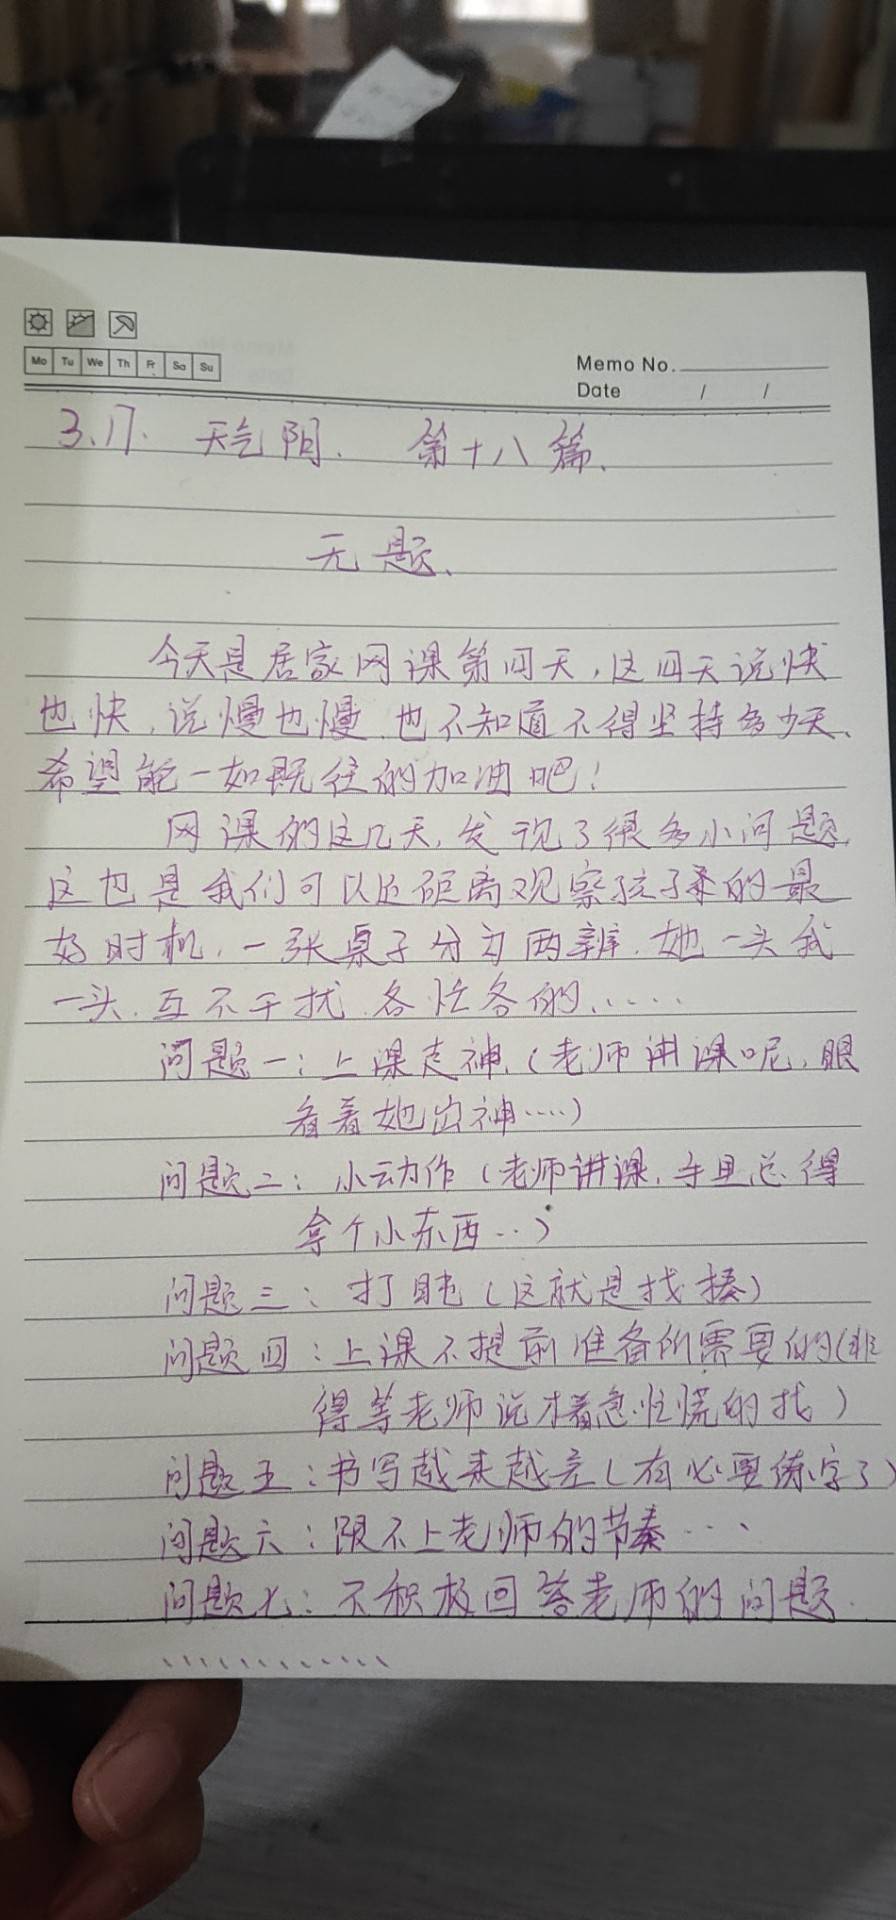 Mo Tu We Th Fr Sa Su
Memo No.
Date / /
3.17. 天气阴. 第十八篇.
无题.
今天是居家网课第四天,这四天说快
也快,说慢也慢.也不知道不得坚持多少天.
希望能一如既往的加油吧!
网课的这几天,发现了很多小问题,
这也是我们可以近距离观察孩子来的最
好时机,一张桌子分为两辦.她一头我
一头.互不干扰.各忙各的.....
问题一:上课走神.(老师讲课呢,眼
看着她出神....)
问题二:小动作(老师讲课,手里总得
拿个小东西...)
问题三:打盹(这就是找揍)
问题四:上课不提前准备所需要的(非
得等老师说才着急忙慌的找)
问题五:书写越来越差(有必要练字了)
问题六:跟不上老师的节奏...
问题七:不积极回答老师的问题.
、、、、、、、、、、、、